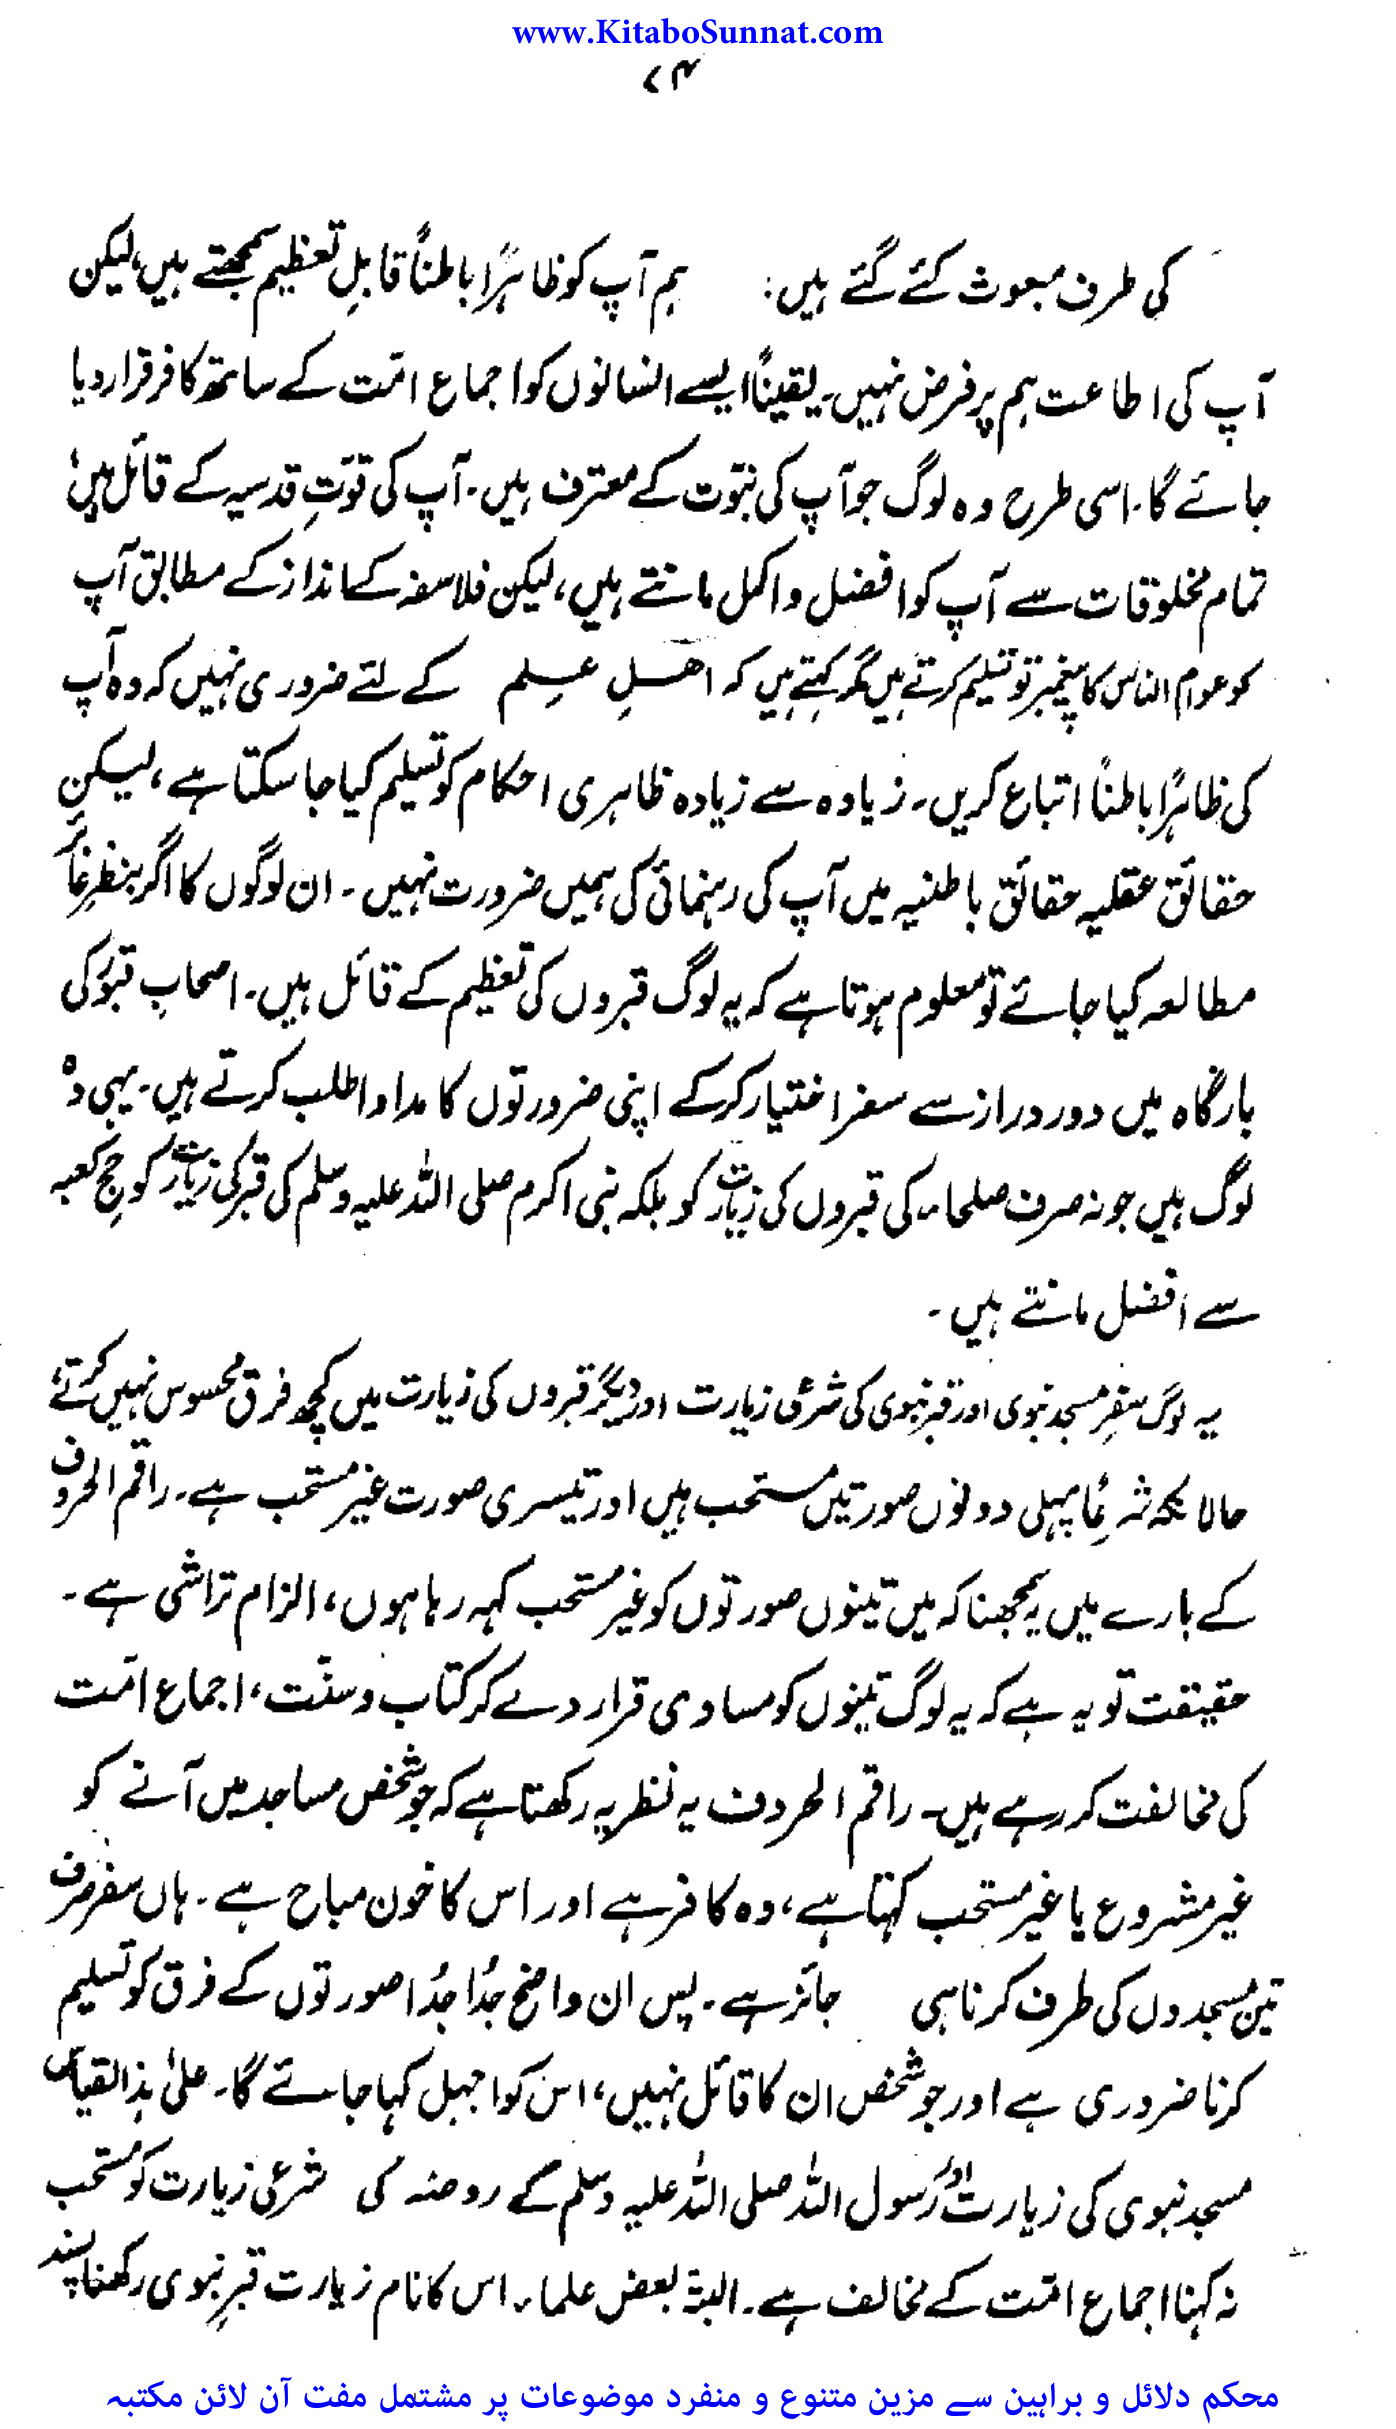 www.KitaboSunnat.com
۷۴
کی طرف مبعوث کئے گئے ہیں: ہم آپ کو ظاہرًا باطنًا قابلِ تعظیم سمجھتے ہیں، لیکن
آپ کی اطاعت ہم پر فرض نہیں۔ یقینًا ایسے انسانوں کو اجماع امّت کے ساتھ کافر قرار دیا
جائے گا۔ اسی طرح وہ لوگ جو آپ کی نبوّت کے معترف ہیں۔ آپ کی قوّتِ قدسیہ کے قائل ہیں،
تمام مخلوقات سے آپ کو افضل و اکمل مانتے ہیں، لیکن فلاسفہ کے انداز کے مطابق آپ
کو عوام الناس کا پیغمبر تو تسلیم کرتے ہیں مگر کہتے ہیں کہ اھلِ علم کے لئے ضروری نہیں کہ وہ آپ
کی ظاہرًا باطنًا اتباع کریں۔ زیادہ سے زیادہ ظاہری احکام کو تسلیم کیا جا سکتا ہے، لیکن
حقائق عقلیہ حقائق باطنیہ میں آپ کی رہنمائی کی ہمیں ضرورت نہیں۔ ان لوگوں کا اگر بنظرِ غائر
مطالعہ کیا جائے تو معلوم ہوتا ہے کہ یہ لوگ قبروں کی تعظیم کے قائل ہیں۔ اصحاب قبور کی
بارگاہ میں دور دراز سے سفر اختیار کر کے اپنی ضرورتوں کا مداوا طلب کرتے ہیں۔ یہی وہ
لوگ ہیں جو نہ صرف صلحاء کی قبروں کی زیارت کو بلکہ نبی اکرم صلی اللہ علیہ وسلم کی قبر کی زیارت کو حج کعبہ
سے افضل مانتے ہیں۔
یہ لوگ سفرِ مسجد نبوی اور قبر نبوی کی شرعی زیارت اور دیگر قبروں کی زیارت میں کچھ فرق محسوس نہیں کرتے
حالانکہ شرعًا پہلی دونوں صورتیں مستحب ہیں اور تیسری صورت غیر مستحب ہے۔ راقم الحروف
کے بارے میں یہ سمجھنا کہ میں تینوں صورتوں کو غیر مستحب کہہ رہا ہوں، الزام تراشی ہے۔
حقیقت تو یہ ہے کہ یہ لوگ تینوں کو مساوی قرار دے کر کتاب و سنّت، اجماع امّت
کی مخالفت کر رہے ہیں۔ راقم الحروف یہ نظریہ رکھتا ہے کہ جو شخص مساجد میں آنے کو
غیر مشروع یا غیر مستحب کہتا ہے، وہ کافر ہے اور اس کا خون مباح ہے۔ ہاں سفر صرف
تین مسجدوں کی طرف کرنا ہی جائز ہے۔ پس ان واضح جُدا جُدا صورتوں کے فرق کو تسلیم
کرنا ضروری ہے اور جو شخص ان کا قائل نہیں، اس کو اجہل کہا جائے گا۔ علیٰ ہذا القیاس
مسجد نبوی کی زیارت اور رسول اللہ صلی اللہ علیہ وسلم کے روضہ کی شرعی زیارت کو مستحب
نہ کہنا اجماع امّت کے مخالف ہے۔ البتہ بعض علماء اس کا نام زیارت قبرِ نبوی رکھنا پسند
محکم دلائل و براہین سے مزین متنوع و منفرد موضوعات پر مشتمل مفت آن لائن مکتبہ